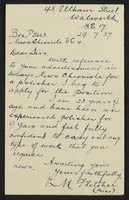 48 Eltham Street
Walworth
S.E. 17
Box 5203 29.7.37
News Chronicle E.C.4
Dear Sirs,
With reference
to your advertisement in
todays News Chronicle for
polisher I wish to
apply for the position
I am 23 years of
age and have been an
experienced polisher for
6 years and feel fully
confident to tackle any
type of work that you
require
Awaiting your
Yours faithfully
M Fletcher
(Miss)